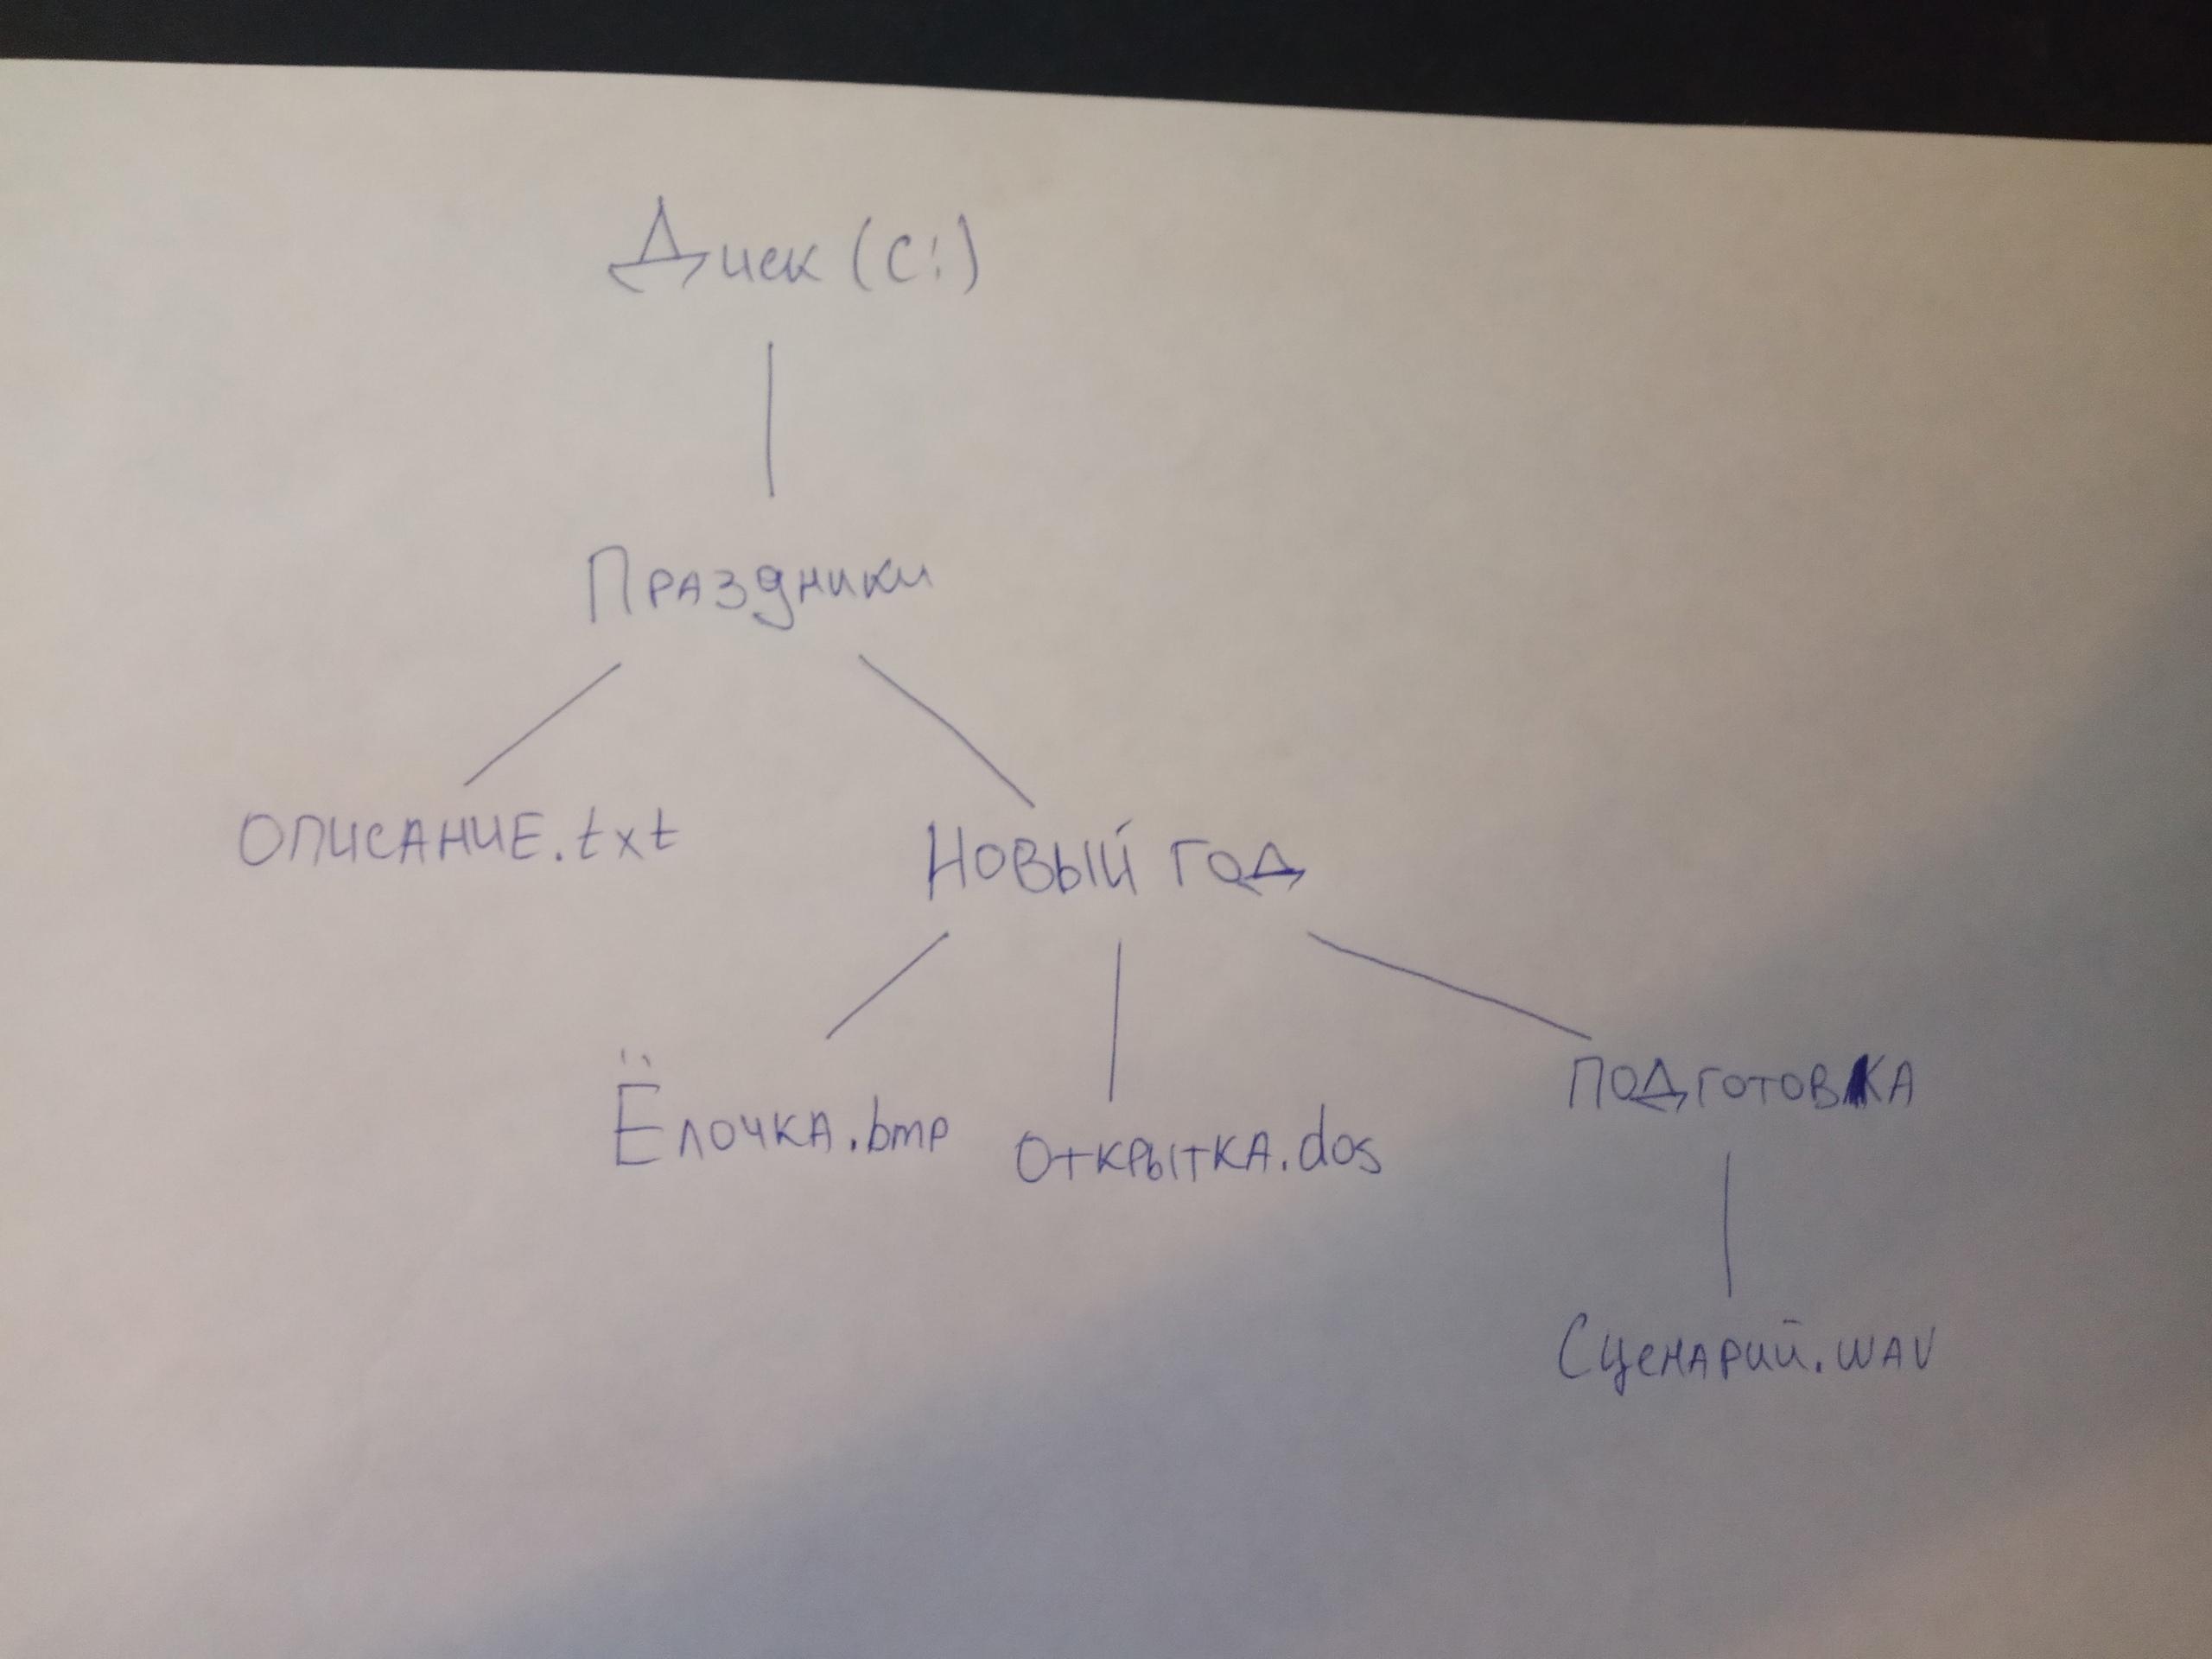 Диск (С:)
Праздники
ОПИСАНИЕ.txt
Новый год
Ёлочка.bmp
Открытка.dos
Подготовка
Сценарий.wav